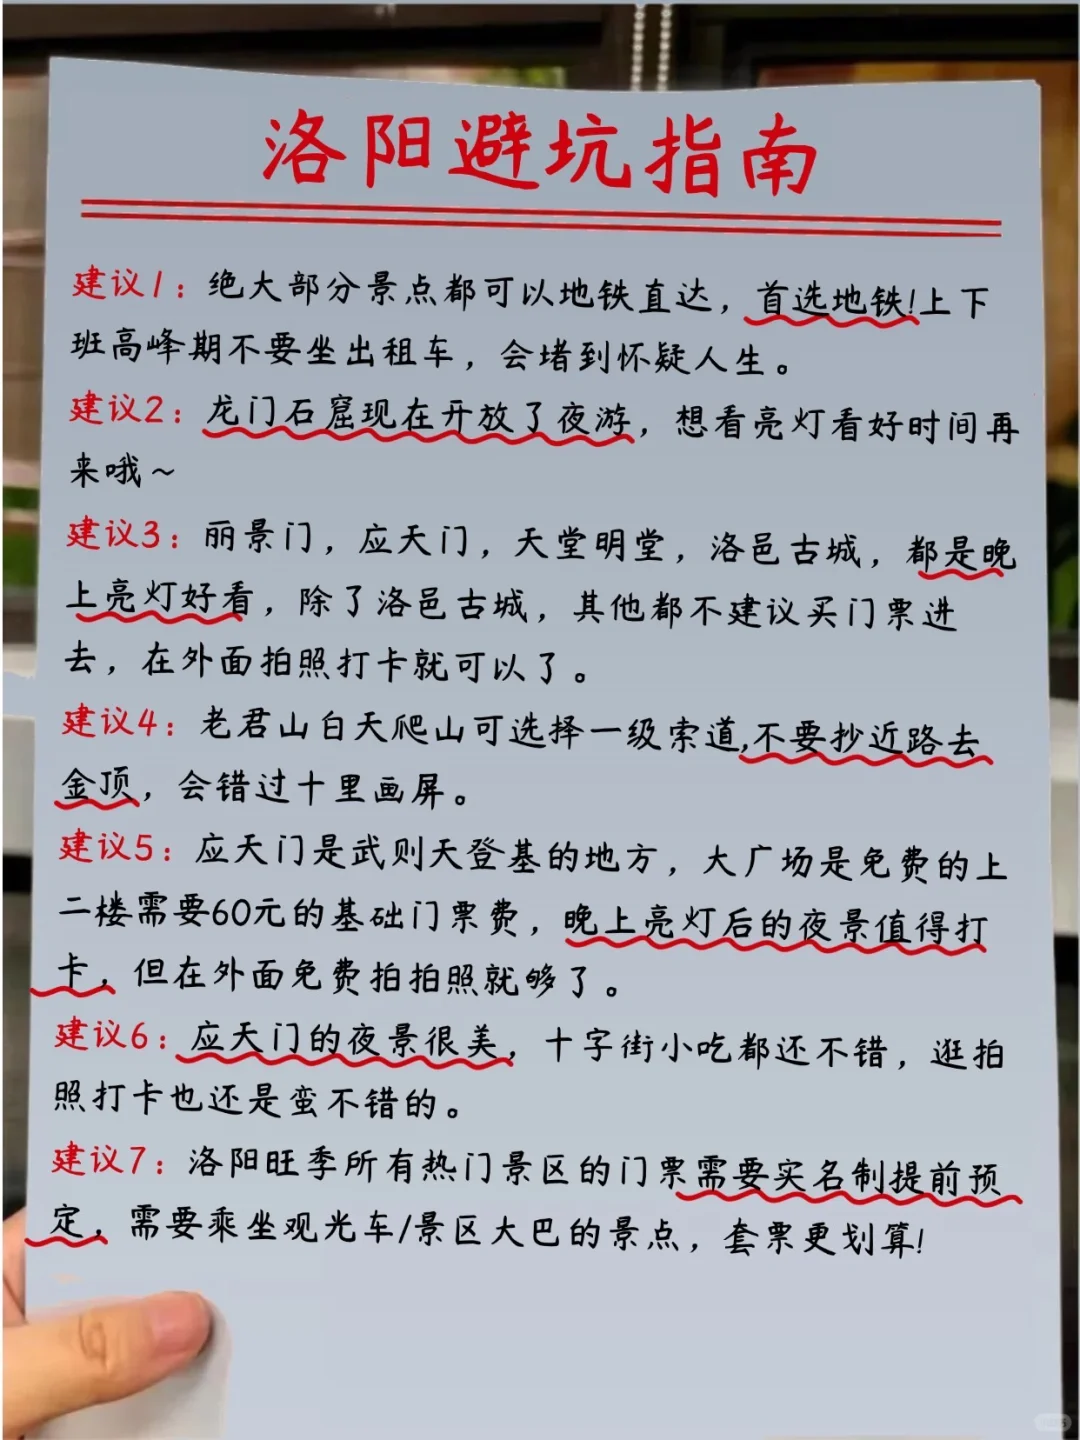 洛阳避坑指南
建议1：绝大部分景点都可以地铁直达，首选地铁!上下
班高峰期不要坐出租车，会堵到怀疑人生。
建议2：龙门石窟现在开放了夜游，想看亮灯看好时间再
来哦~
建议3：丽景门，应天门，天堂明堂，洛邑古城，都是晚
上亮灯好看，除了洛邑古城，其他都不建议买门票进
去，在外面拍照打卡就可以了。
建议4：老君山白天爬山可选择一级索道,不要抄近路去
金顶，会错过十里画屏。
建议5：应天门是武则天登基的地方，大广场是免费的上
二楼需要60元的基础门票费，晚上亮灯后的夜景值得打
卡，但在外面免费拍拍照就够了。
建议6：应天门的夜景很美，十字街小吃都还不错，逛拍
照打卡也还是蛮不错的。
建议7：洛阳旺季所有热门景区的门票需要实名制提前预
定，需要乘坐观光车/景区大巴的景点，套票更划算!